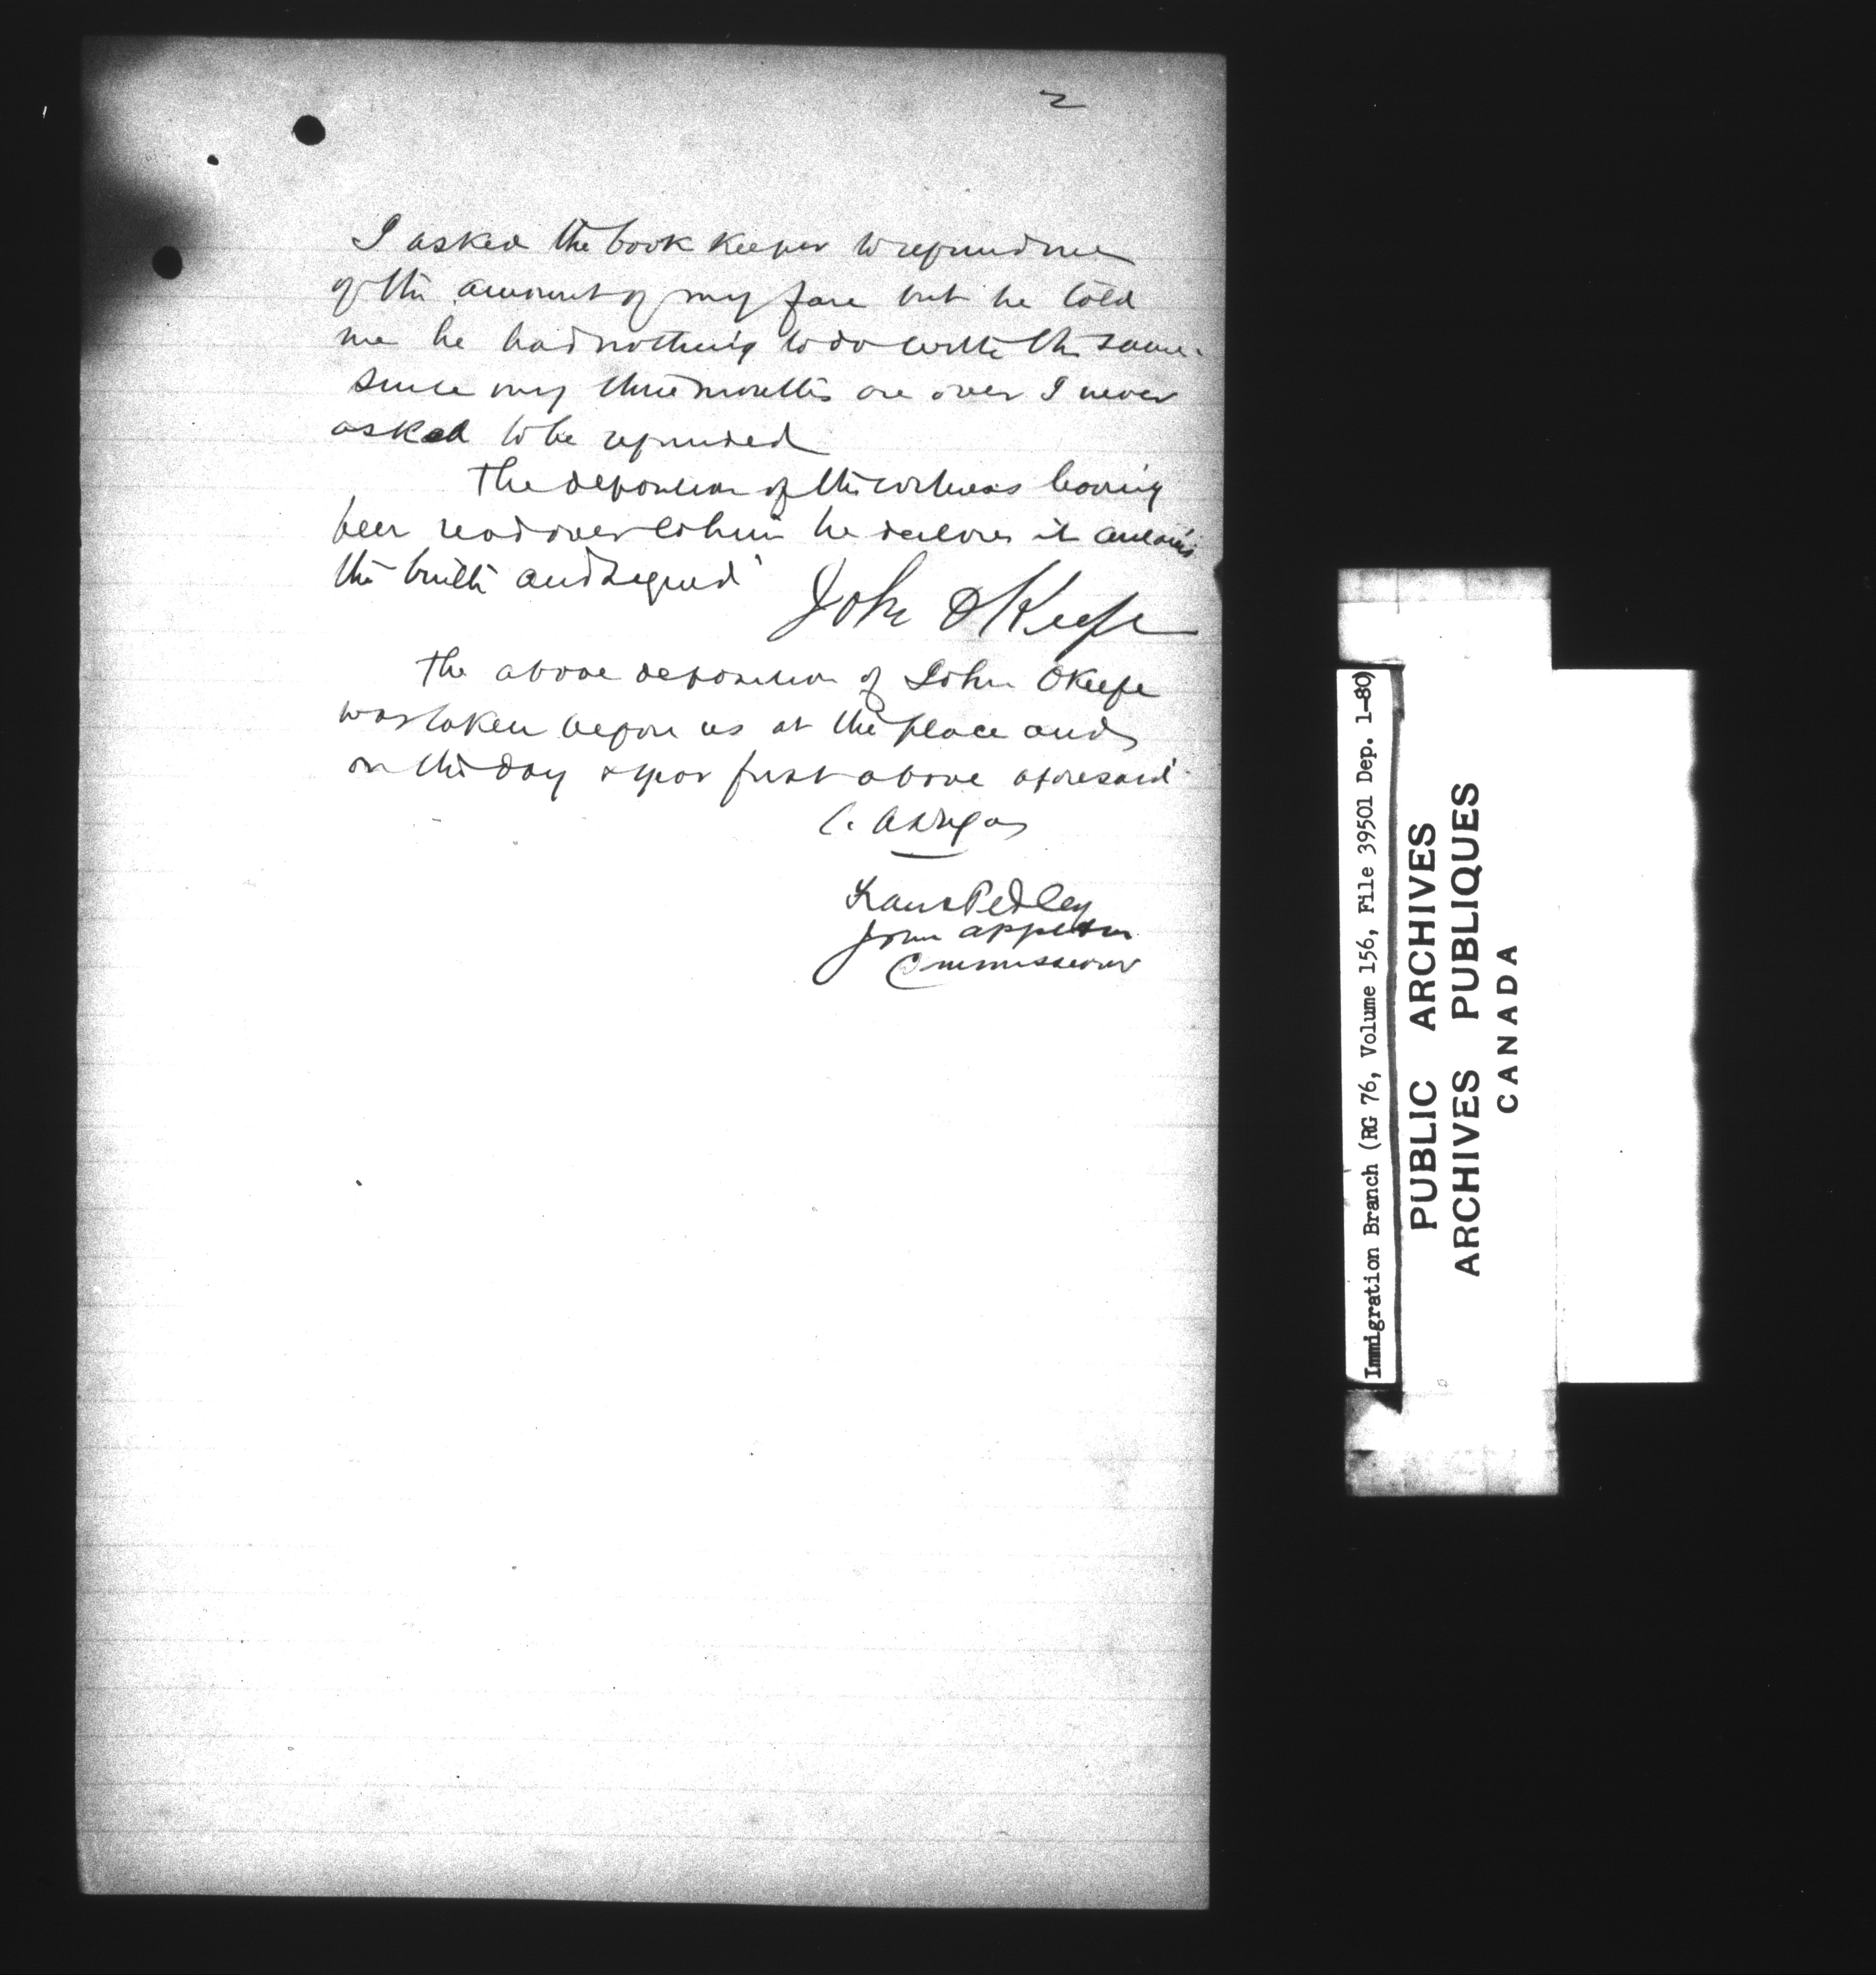 2
I asked the book keeper to refund me
of the amount of my fare but he told
me he had nothing to do with the same.
Since my three months are over I never
asked to be refunded
The deposition of this witness having
been read over to him he declares it contains
the truth and signed
John O'Keefe
The above deposition of John O'Keefe
was taken before us at the place and
on the day & year first above aforesaid
C. A. Dugas
Frank Pedley
John Appleton
Commissioner
Immigration Branch (RG 76, Volume 156, File 39501 Dep. 1-80)
PUBLIC ARCHIVES
ARCHIVES PUBLIQUES
CANADA